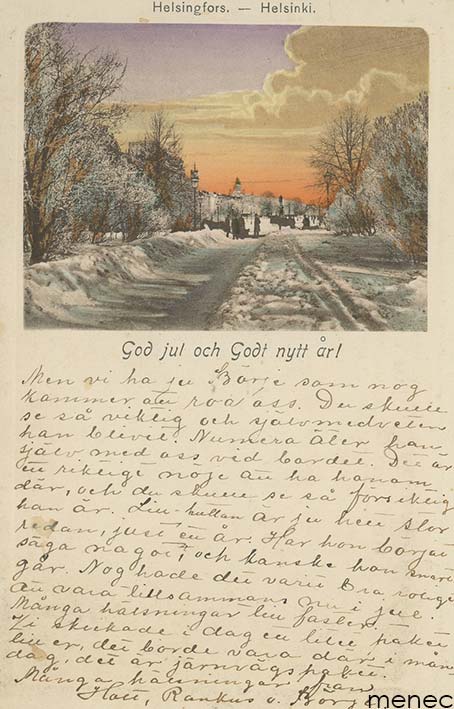 Helsingfors. — Helsinki.
God jul och Godt nytt år!
Men vi ha ju Börje som nog
kommer att roa oss. Du skulle
se så viktig och självmedveten
han blivit. Numera äter han
själv med oss vid bordet. Det är
ett riktigt nöje att ha honom
där, och du skulle se så försiktig
han är. är ju hela stor
redan, just en år. Har hon börjat
säga något? och kanske hon snart
går. Nog hade det varit bra roligt
att vara tillsammans nu i jul.
Många hälsningar till
Vi skickade i dag en liten paket
till er, det borde vara där i mån-
dag, det är järnvägspaket.
Många hälsningar från
menec